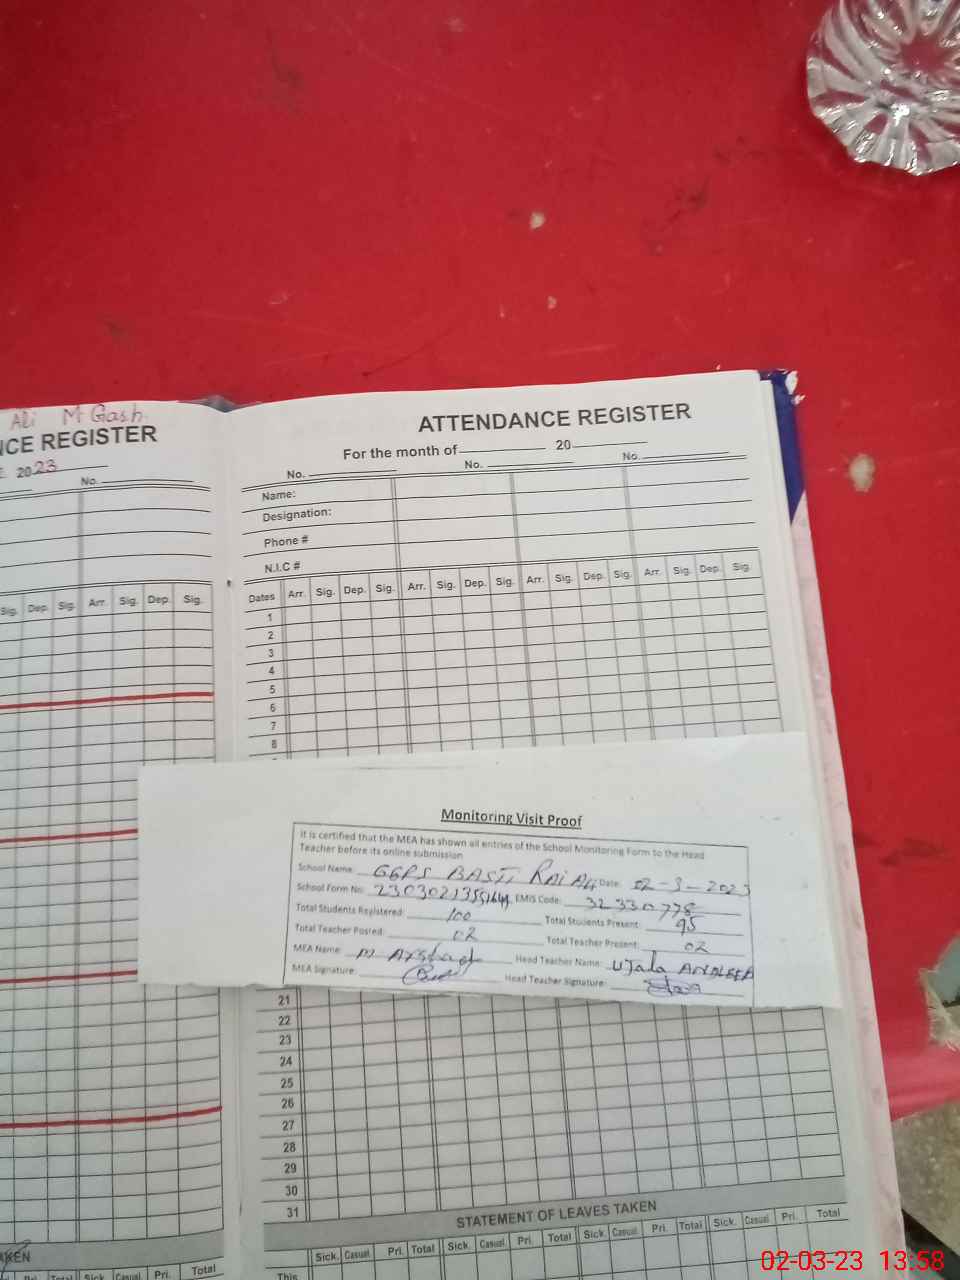 Ali M Gash
NCE REGISTER
2023
No.
Sig. Dep. Sig. Arr. Sig. Dep. Sig.
TAKEN
Pri. Total Sick. Casual Pri. Total
ATTENDANCE REGISTER
For the month of 20
No. No. No.
Name:
Designation:
Phone #
N.I.C #
Dates Arr. Sig. Dep. Sig. Arr. Sig. Dep. Sig. Arr. Sig. Dep. Sig. Arr. Sig. Dep. Sig.
1
2
3
4
5
6
7
8
Monitoring Visit Proof
It is certified that the MEA has shown all entries of the School Monitoring Form to the Head
Teacher before its online submission
School Name: GGPS BASTI RAI Ali Date: 02-3-2023
School Form No: EMIS Code: 32330778
Total Students Registered: 100 Total Students Present: 95
Total Teacher Posted: 02 Total Teacher Present: 02
MEA Name: M Arshad Head Teacher Name: UJala
MEA Signature: Head Teacher Signature:
21
22
23
24
25
26
27
28
29
30
31
STATEMENT OF LEAVES TAKEN
Sick. Casual Pri. Total Sick. Casual Pri. Total Sick. Casual Pri. Total Sick. Casual Pri. Total
This
02-03-23 13:58